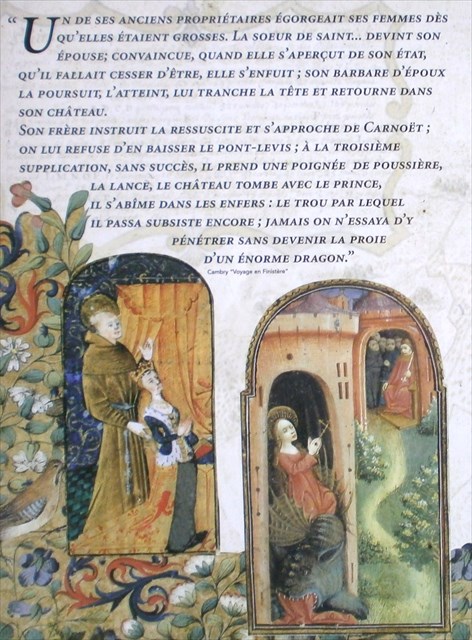 “UN DE SES ANCIENS PROPRIÉTAIRES ÉGORGEAIT SES FEMMES DÈS
QU'ELLES ÉTAIENT GROSSES. LA SOEUR DE SAINT... DEVINT SON
ÉPOUSE; CONVAINCUE, QUAND ELLE S'APERÇUT DE SON ÉTAT,
QU'IL FALLAIT CESSER D'ÊTRE, ELLE S'ENFUIT ; SON BARBARE D'ÉPOUX
LA POURSUIT, L'ATTEINT, LUI TRANCHE LA TÊTE ET RETOURNE DANS
SON CHÂTEAU.
SON FRÈRE INSTRUIT LA RESSUSCITE ET S'APPROCHE DE CARNOËT ;
ON LUI REFUSE D'EN BAISSER LE PONT-LEVIS ; À LA TROISIÈME
SUPPLICATION, SANS SUCCÈS, IL PREND UNE POIGNÉE DE POUSSIÈRE,
LA LANCE, LE CHÂTEAU TOMBE AVEC LE PRINCE,
IL S'ABÎME DANS LES ENFERS : LE TROU PAR LEQUEL
IL PASSA SUBSISTE ENCORE ; JAMAIS ON N'ESSAYA D'Y
PÉNÉTRER SANS DEVENIR LA PROIE
D'UN ÉNORME DRAGON.”
Cambry "Voyage en Finistère"